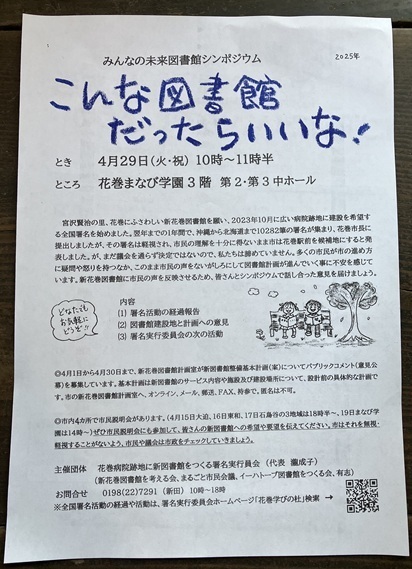 みんなの未来図書館シンポジウム
2025年
こんな図書館
だったらいいな!
とき 4月29日(火・祝) 10時~11時半
ところ 花巻まなび学園3階 第2・第3中ホール
宮沢賢治の里、花巻にふさわしい新花巻図書館を願い、2023年10月に広い病院跡地に建設を希望す
る全国署名を始めました。翌年までの1年間で、沖縄から北海道まで10282筆の署名が集まり、花巻市長に
提出しましたが、その署名は軽視され、市民の理解を十分に得ないまま市は花巻駅前を候補地にすると発
表しました。が、まだ議会を通らず決定ではないので、私たちは諦めていません。多くの市民が市の進め方
に疑問や怒りを持つなか、このまま市民の声をないがしろにして図書館計画が進んでいく事に不安を感じて
います。新花巻図書館に市民の声を反映させるため、皆さんとシンポジウムで話し合った意見を届けましょう。
どなたでも
お気軽に
どうぞ!!
内容
(1) 署名活動の経過報告
(2) 図書館建設地と計画への意見
(3) 署名実行委員会の次の活動
◎4月1日から4月30日まで、新花巻図書館計画室が新図書館整備基本計画(案)についてパブリックコメント(意見公
募)を募集しています。基本計画は新図書館のサービス内容や施設及び建設場所について、設計前の具体的な計画で
す。市の新花巻図書館計画室へ、オンライン、メール、郵送、FAX、持参で。匿名は不可。
◎市内4カ所で市民説明会があります。(4月15日大迫、16日東和、17日石鳥谷の3地域は18時半~、19日まなび学
園は14時~)ぜひ市民説明会にも参加して、皆さんの新図書館への希望や要望を伝えてください。市はそれを無視・
軽視することがないよう、市民や議会は市政をチェックしていきましょう。
主催団体 花巻病院跡地に新図書館をつくる署名実行委員会 (代表 瀧成子)
(新花巻図書館を考える会、まるごと市民会議、イーハトーブ図書館をつくる会、有志)
お問合せ 0198(22)7291 (新田) 10時~18時
※全国署名活動の経過や活動は、署名実行委員会ホームページ「花巻学びの杜」検索 →